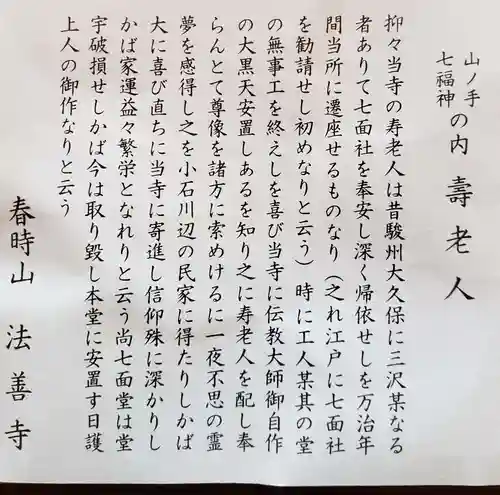 山ノ手七福神の内　壽老人
抑々当寺の寿老人は昔駿州大久保に三沢某なる
者ありて七面社を奉安し深く帰依せしを万治年
間当所に遷座せるものなり（之れ江戸に七面社
を勧請せし初めなりと云う）時に工人某其の堂
の無事工を終えしを喜び当寺に伝教大師御自作
の大黒天安置しあるを知り之に寿老人を配し奉
らんとて尊像を諸方に索めけるに一夜不思の霊
夢を感得し之を小石川辺の民家に得たりしかば
大に喜び直ちに当寺に寄進し信仰殊に深かりし
かば家運益々繁栄となれりと云う尚七面堂は堂
宇破損せしかば今は取り毀し本堂に安置す日護
上人の御作なりと云う
春時山　法善寺